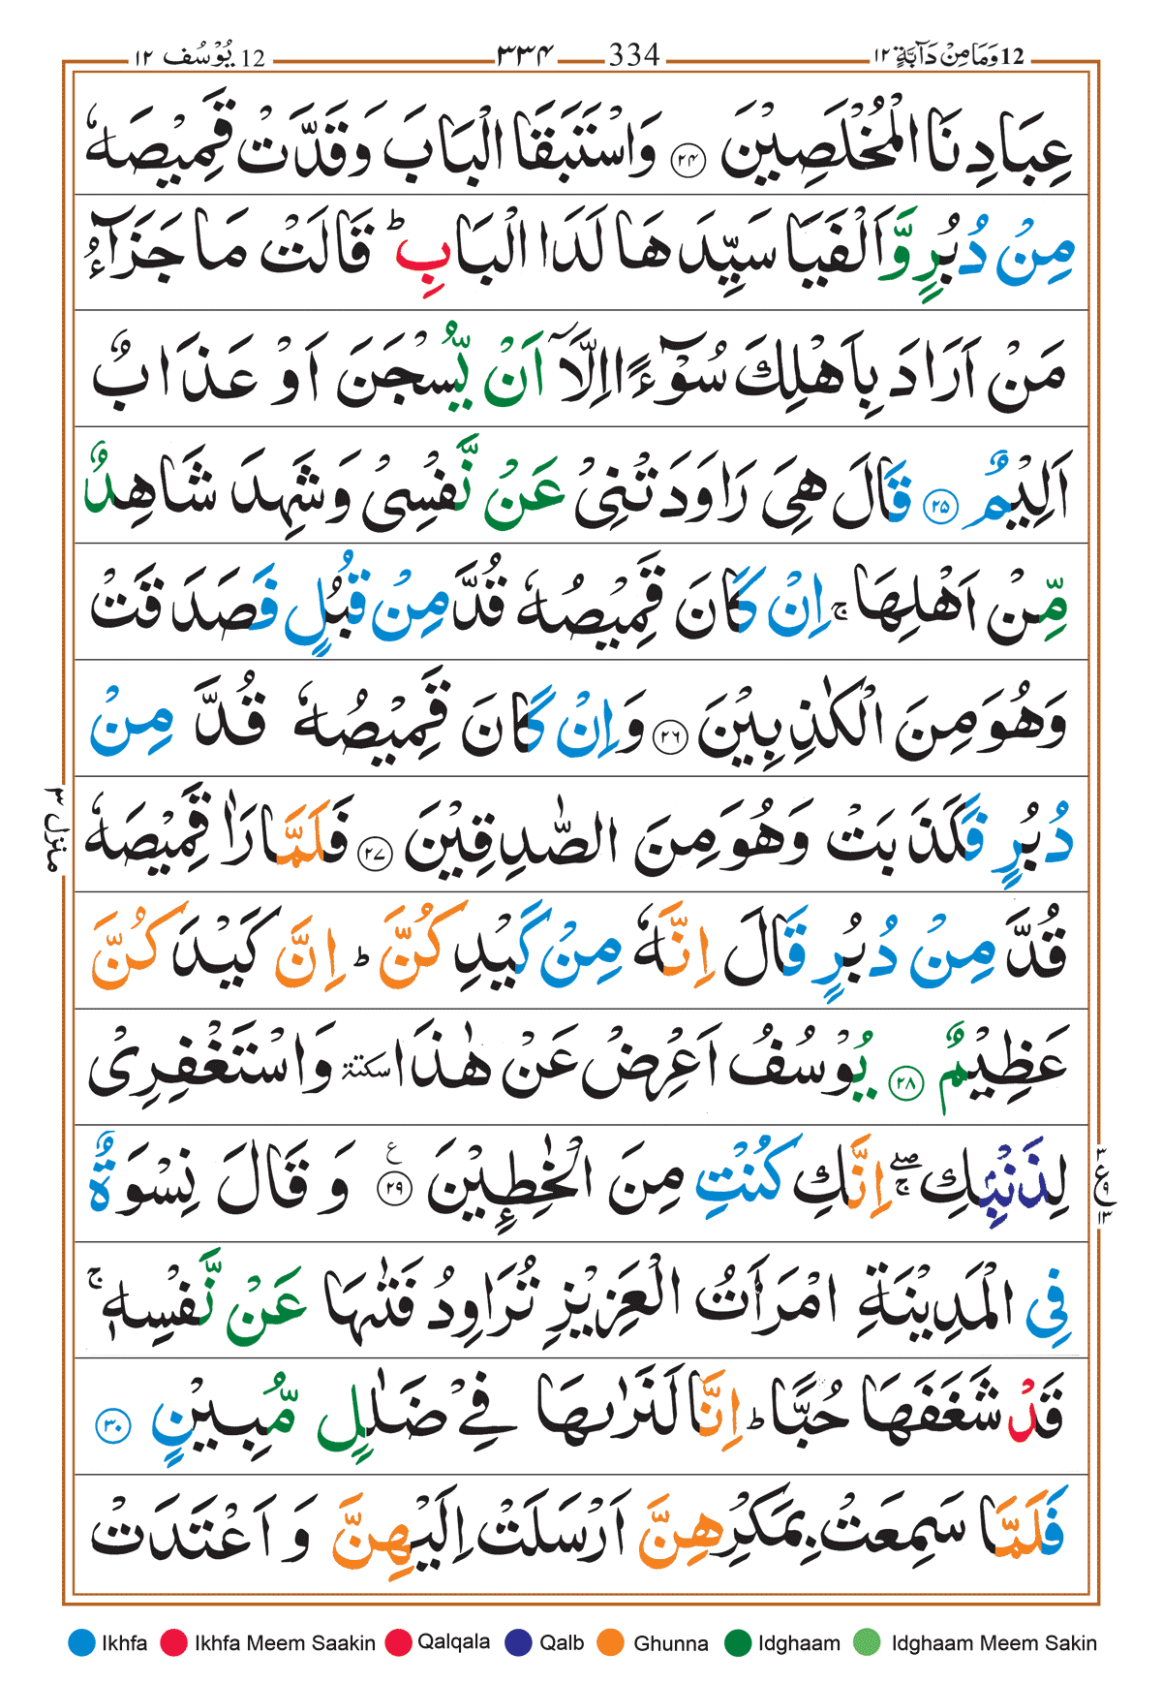 12 وَمَا مِنْ دَآبَّةٍ ١٢ 334 ٣٣٤ 12 يُوْسُف ١٢
عِبَادِنَا الْمُخْلَصِيْنَ ﴿٢٤﴾ وَاسْتَبَقَا الْبَابَ وَقَدَّتْ قَمِيْصَهٗ
مِنْ دُبُرٍ وَّاَلْفَيَا سَيِّدَهَا لَدَا الْبَابِ ؕ قَالَتْ مَا جَزَآءُ
مَنْ اَرَادَ بِاَهْلِكَ سُوْٓءًا اِلَّاۤ اَنْ يُّسْجَنَ اَوْ عَذَابٌ
اَلِيْمٌ ﴿٢٥﴾ قَالَ هِيَ رَاوَدَتْنِيْ عَنْ نَّفْسِيْ وَشَهِدَ شَاهِدٌ
مِّنْ اَهْلِهَا ۚ اِنْ كَانَ قَمِيْصُهٗ قُدَّ مِنْ قُبُلٍ فَصَدَقَتْ
وَهُوَ مِنَ الْكٰذِبِيْنَ ﴿٢٦﴾ وَاِنْ كَانَ قَمِيْصُهٗ قُدَّ مِنْ
دُبُرٍ فَكَذَبَتْ وَهُوَ مِنَ الصّٰدِقِيْنَ ﴿٢٧﴾ فَلَمَّا رَاٰ قَمِيْصَهٗ
قُدَّ مِنْ دُبُرٍ قَالَ اِنَّهٗ مِنْ كَيْدِكُنَّ ؕ اِنَّ كَيْدَكُنَّ
عَظِيْمٌ ﴿٢٨﴾ يُوْسُفُ اَعْرِضْ عَنْ هٰذَا سكتة وَاسْتَغْفِرِيْ
لِذَنْۢبِكِ ۖۚ اِنَّكِ كُنْتِ مِنَ الْخٰطِـِٕيْنَ ﴿٢٩﴾ ع وَ قَالَ نِسْوَةٌ
فِي الْمَدِيْنَةِ امْرَاَتُ الْعَزِيْزِ تُرَاوِدُ فَتٰىهَا عَنْ نَّفْسِهٖ ۚ
قَدْ شَغَفَهَا حُبًّا ؕ اِنَّا لَنَرٰىهَا فِيْ ضَلٰلٍ مُّبِيْنٍ ﴿٣٠﴾
فَلَمَّا سَمِعَتْ بِمَكْرِهِنَّ اَرْسَلَتْ اِلَيْهِنَّ وَ اَعْتَدَتْ
منزل ٣
٣ ع ٩ ١٣
Ikhfa Ikhfa Meem Saakin Qalqala Qalb Ghunna Idghaam Idghaam Meem Sakin